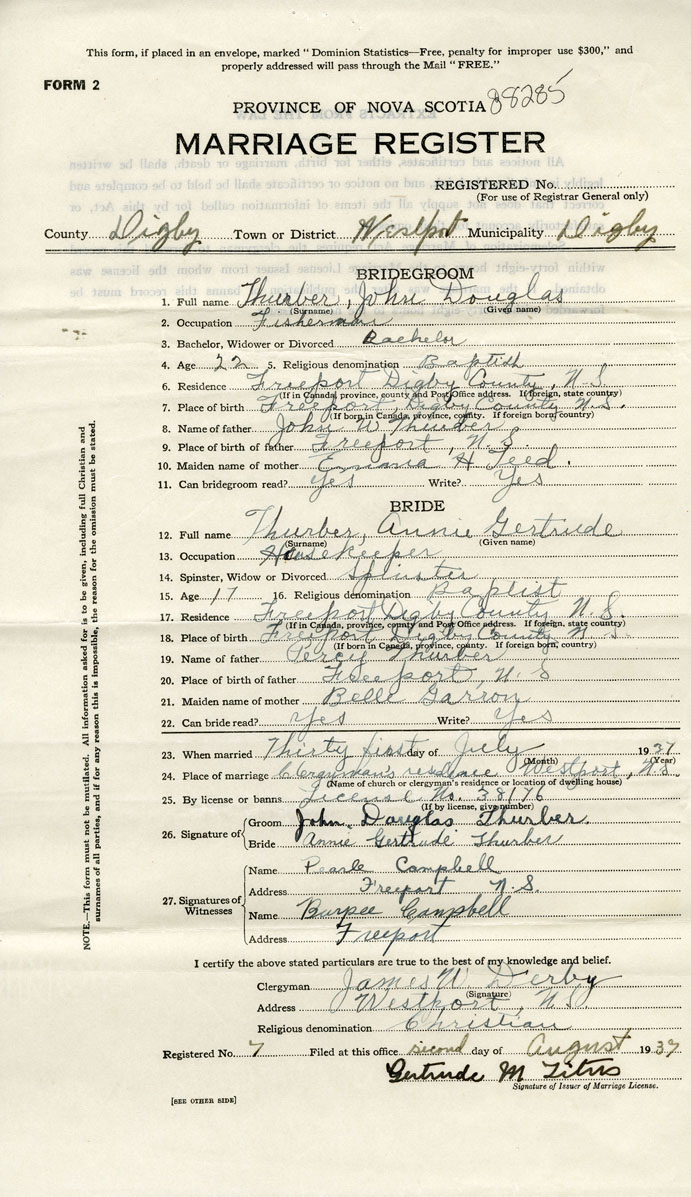 This form, if placed in an envelope, marked "Dominion Statistics—Free, penalty for improper use $300," and
properly addressed will pass through the Mail "FREE."
FORM 2
PROVINCE OF NOVA SCOTIA 88285
MARRIAGE REGISTER
REGISTERED No.
(For use of Registrar General only)
County Digby Town or District Westport Municipality Digby
BRIDEGROOM
1. Full name Thurber, John Douglas
(Surname) (Given name)
2. Occupation Fisherman
3. Bachelor, Widower or Divorced Bachelor
4. Age 22 5. Religious denomination Baptist
6. Residence Freeport Digby County, N.S.
(If in Canada, province, county and Post Office address. If foreign, state country)
7. Place of birth Freeport, Digby County N.S.
(If born in Canada, province, county. If foreign born, country)
8. Name of father John W Thurber
9. Place of birth of father Freeport, N.S.
10. Maiden name of mother Emma H Teed.
11. Can bridegroom read? Yes Write? Yes
BRIDE
12. Full name Thurber, Annie Gertrude
(Surname) (Given name)
13. Occupation Housekeeper
14. Spinster, Widow or Divorced Spinster
15. Age 17 16. Religious denomination Baptist
17. Residence Freeport Digby County N.S.
(If in Canada, province, county and Post Office address. If foreign, state country)
18. Place of birth Freeport Digby County N.S.
(If born in Canada, province, county. If foreign born, country)
19. Name of father Percy Thurber
20. Place of birth of father Freeport, N.S
21. Maiden name of mother Belle Garron
22. Can bride read? Yes Write? Yes
23. When married Thirty first day of July 1937
(Month) (Year)
24. Place of marriage Clergyman's residence Westport, N.S.
(Name of church or clergyman's residence or location of dwelling house)
25. By license or banns License No. 38176
(If by license, give number)
26. Signature of Groom John Douglas Thurber.
Bride Annie Gertrude Thurber
27. Signatures of Witnesses
Name Pearle Campbell
Address Freeport N.S.
Name Burpee Campbell
Address Freeport
I certify the above stated particulars are true to the best of my knowledge and belief.
Clergyman James W Derby
(Signature)
Address Westport, N.S
Religious denomination Christian
Registered No. 7 Filed at this office second day of August 1937
Gertrude M Titus
Signature of Issuer of Marriage License.
[SEE OTHER SIDE]
NOTE.—This form must not be mutilated. All information asked for is to be given, including full Christian and
surnames of all parties, and if for any reason this is impossible, the reason for the omission must be stated.